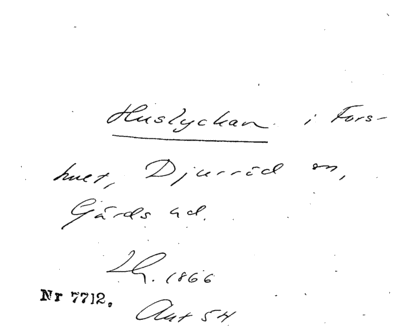 Huslyckan i Fors-
huet, Djurröd sn,
Gärds hd.
Lh. 1866
Nr 7712.
Aut SH